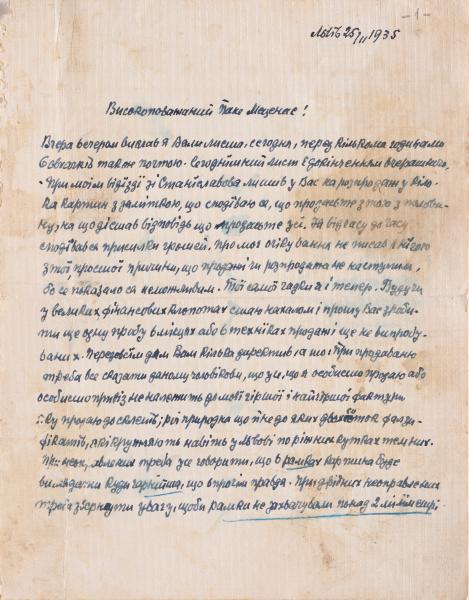 - 1 -
Львів 25/II 1935
Високоповажаний Пане Меценас!
Вчера вечером вислав я Вам листа, сегодня, перед кількома годинами
також почтою. Сегоднішний лист є докінченням вчерашного.
При моїм відїзді зі Станіславова лишив у Вас на розпродаж кіль-
ка картин з заміткою, що сподіваюся, що продасьте з того з полови-
ну, на що дістав відповідь що продасьте усі. Від часу до часу
сподівався присилки грошей. Про мої очікування не писав нічого
з тої простої причини, що продажі чи розпродажа не наступили,
бо се показало ся неможливим. Тої самої гадки я і тепер. Будучи
у великих фінансових клопотах стаю нахалом і прошу Вас зроби-
ти ще одну пробу в місцях або в техніках продажі ще не випробу-
ваних. Передовсім дам Вам кілька директив, а то: При продаванню
треба все сказати даному чоловікови, що
особисто привіз не належить до моєї гіршої і найгіршої фактури
яку продаю до склепів; річ природна що й не до яких
фікатів, які крутяють навіть у Львові по ріжних кутках темних.
треба уже говорити, що в рамках картина буде
виглядати куди гарнійша, що впрочім правда. При двійних неоправлених
треба звернути увагу, щоби рамки не захвачували понад 2 міліметрі.